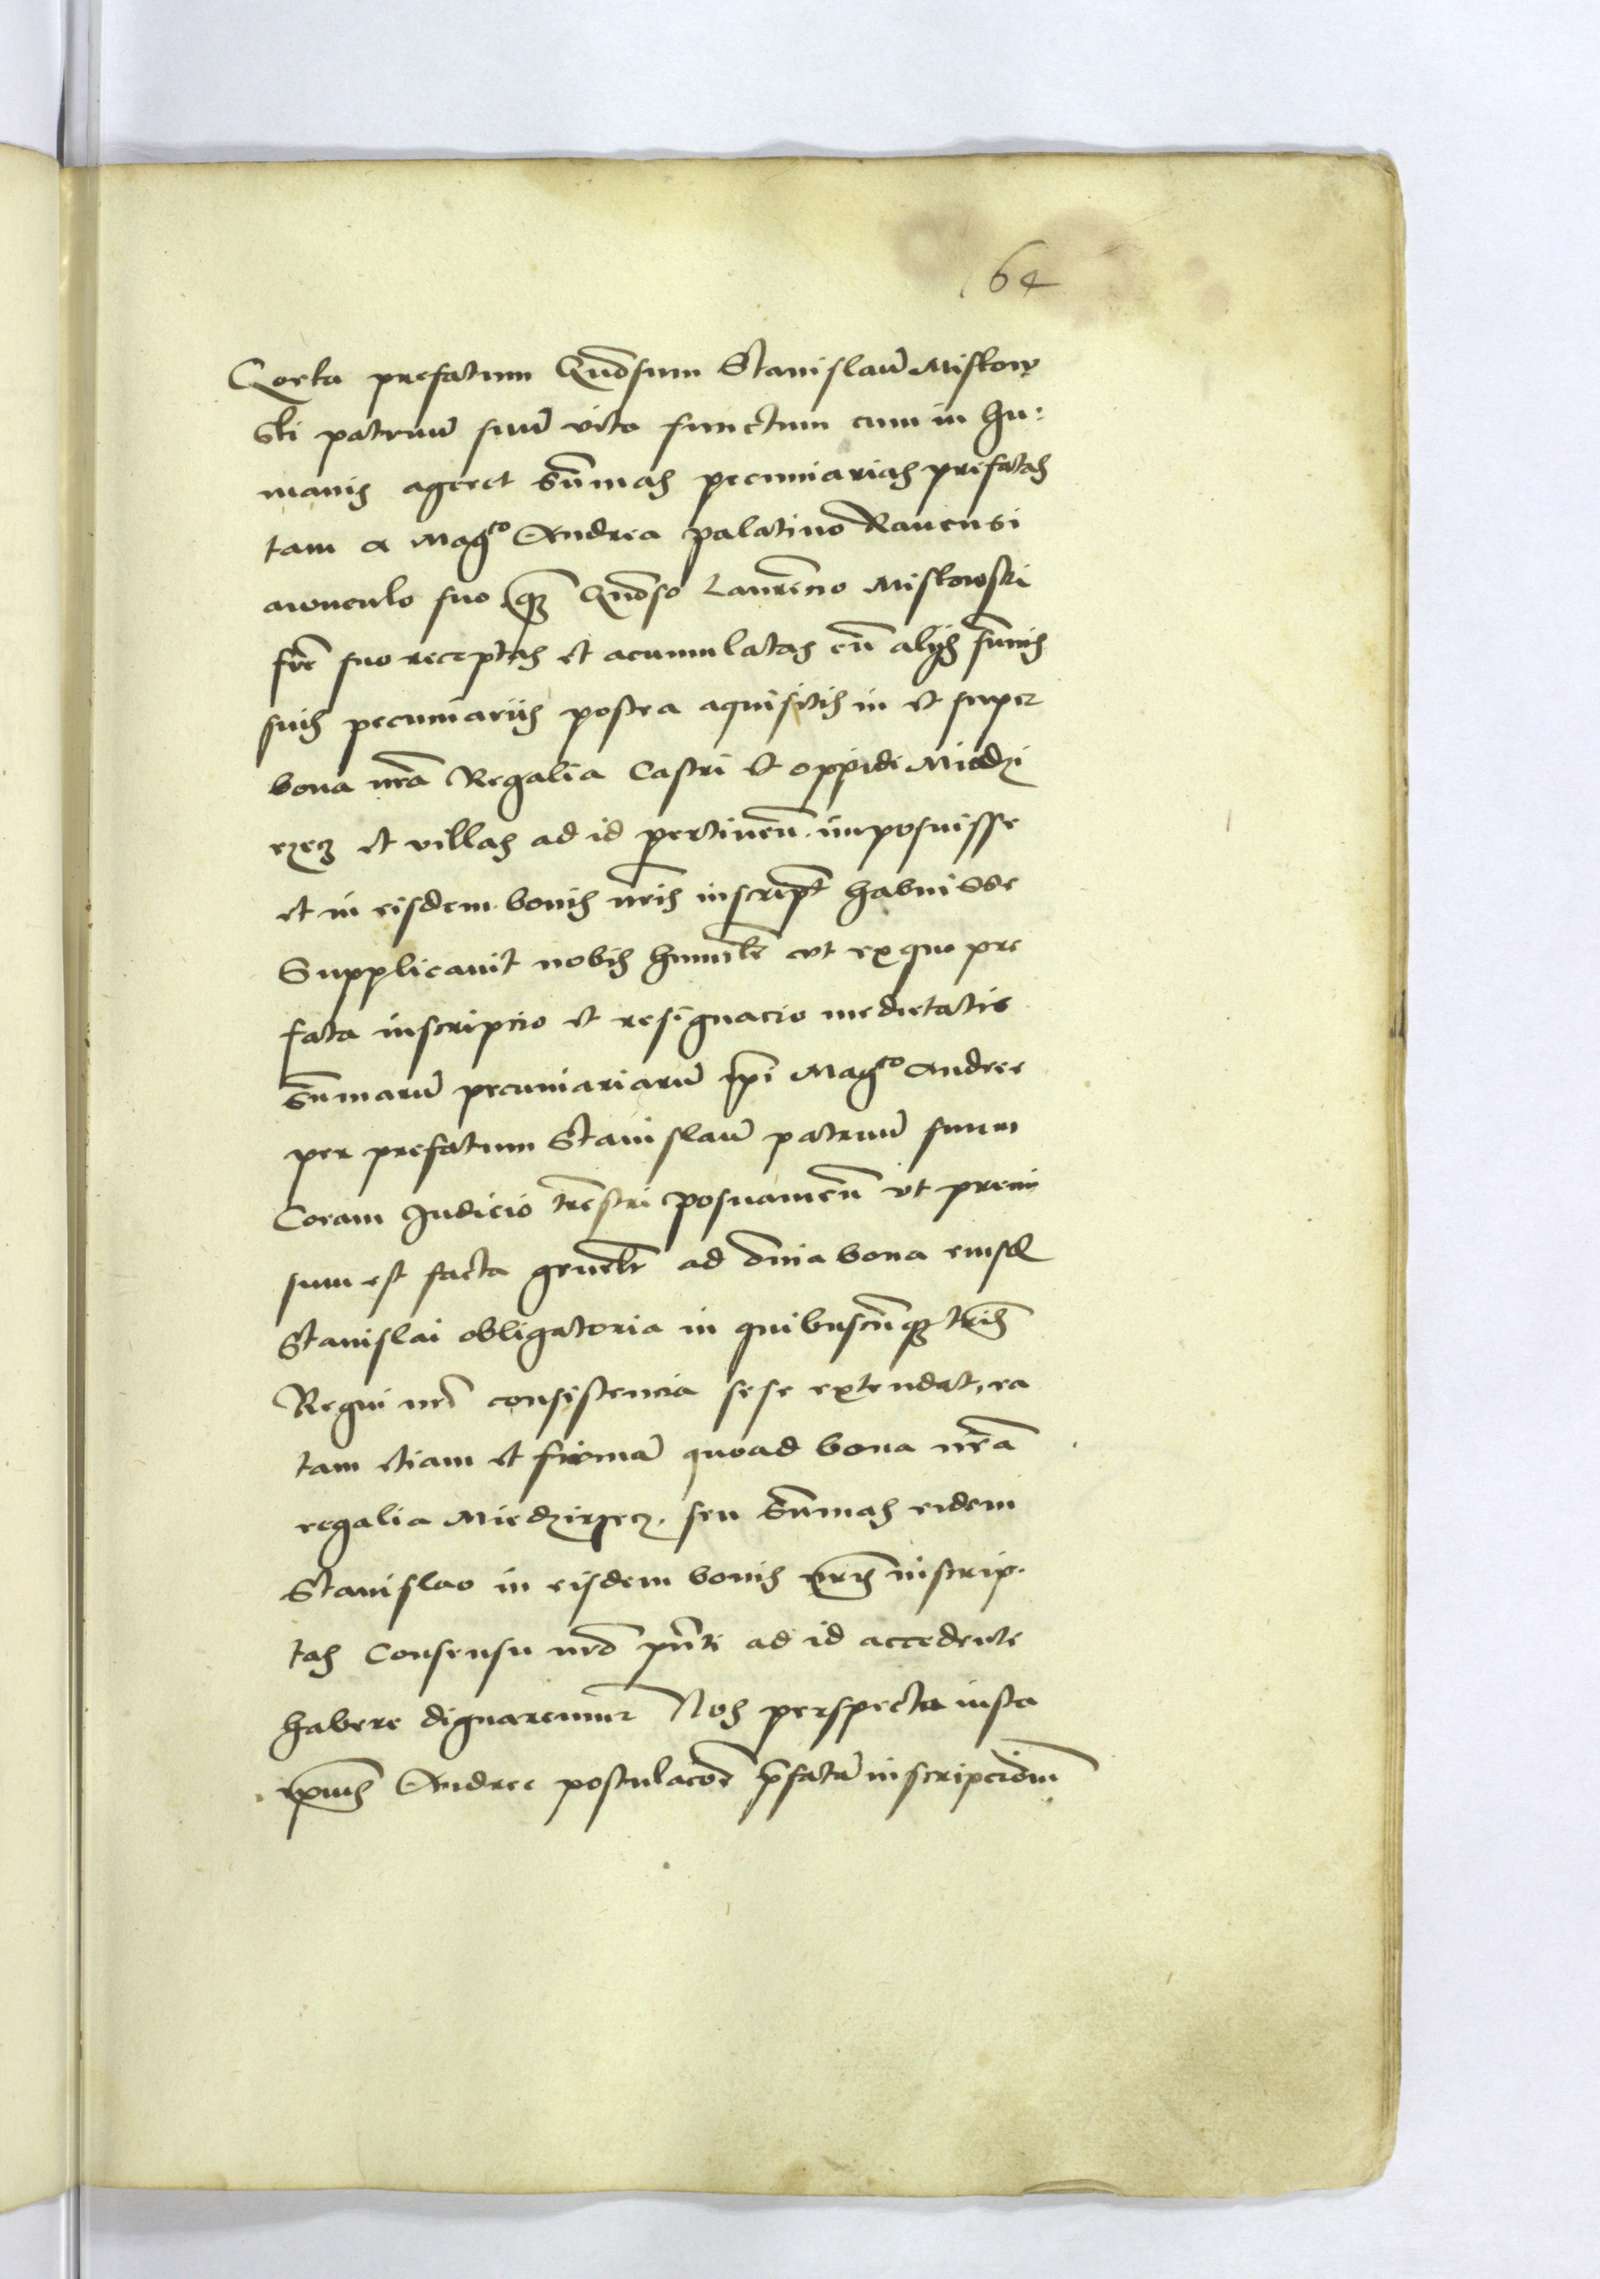 64
Qorka prefatum G̃nosum Stanislaũ Mislow
ski patruũ suũ vita functum cum in hu:
manis ageret sũmas pecuniarias prefatas
tam a Magco Andrea palatino Ravensi
avunculo suo q̃ G̃noso Laurẽcio Mislowski
frẽ suo receptas et acumulatas cũ alijs sũmis
suis pecuniariis postea aquisitis in et super
bona nrã Regalia Castri et oppidi Miedzi
rzecz et villas ad id pertineñ. imposuisse
et in eisdem bonis nrĩs inscript̃ habuisse
Supplicavit nobis humilr̃ ut ex quo pre
fata inscripcio et resignacio medietatis
sũmarũ pecuniariarũ ip̃i Magco Andree
per prefatum Stanislaũ patruũ suum
Coram Judicio tr̃estri posnanieñ ut premi
sum est facta gen̄alr̃ ad om̃ia bona eiusd̃
Stanislai obligatoria in quibuscũq̃ tr̃is
Regni nr̃i consistencia sese extendat, ra
tam etiam et firmã quoad bona nrã
regalia Miedzirzecz. seu sũmas eidem
Stanislao in eisdem bonis nr̃is inscrip.
tas Consensu nrõ pñti ad id accedente
habere dignaremur Nos perspecta iusta
ip̃ius Andree postulacõe p̃fatã inscripcionẽm